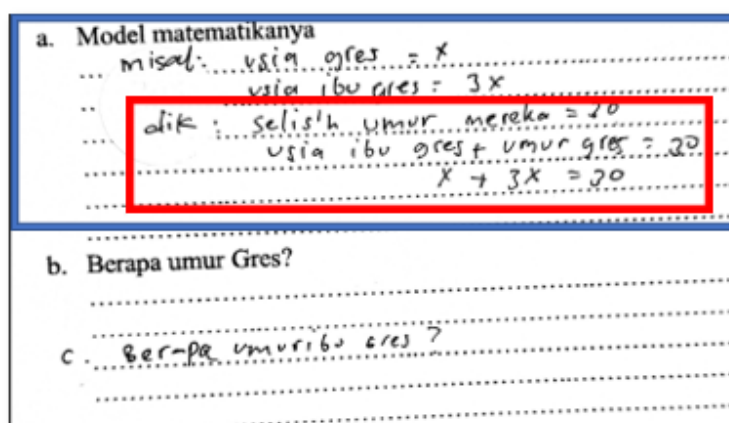 a. Model matematikanya
misal: usia gres = x
usia ibu gres = 3x
dik : selisih umur mereka = 30
usia ibu gres + umur gres = 30
x + 3x = 30
b. Berapa umur Gres?
c. Berapa umur ibu Gres?